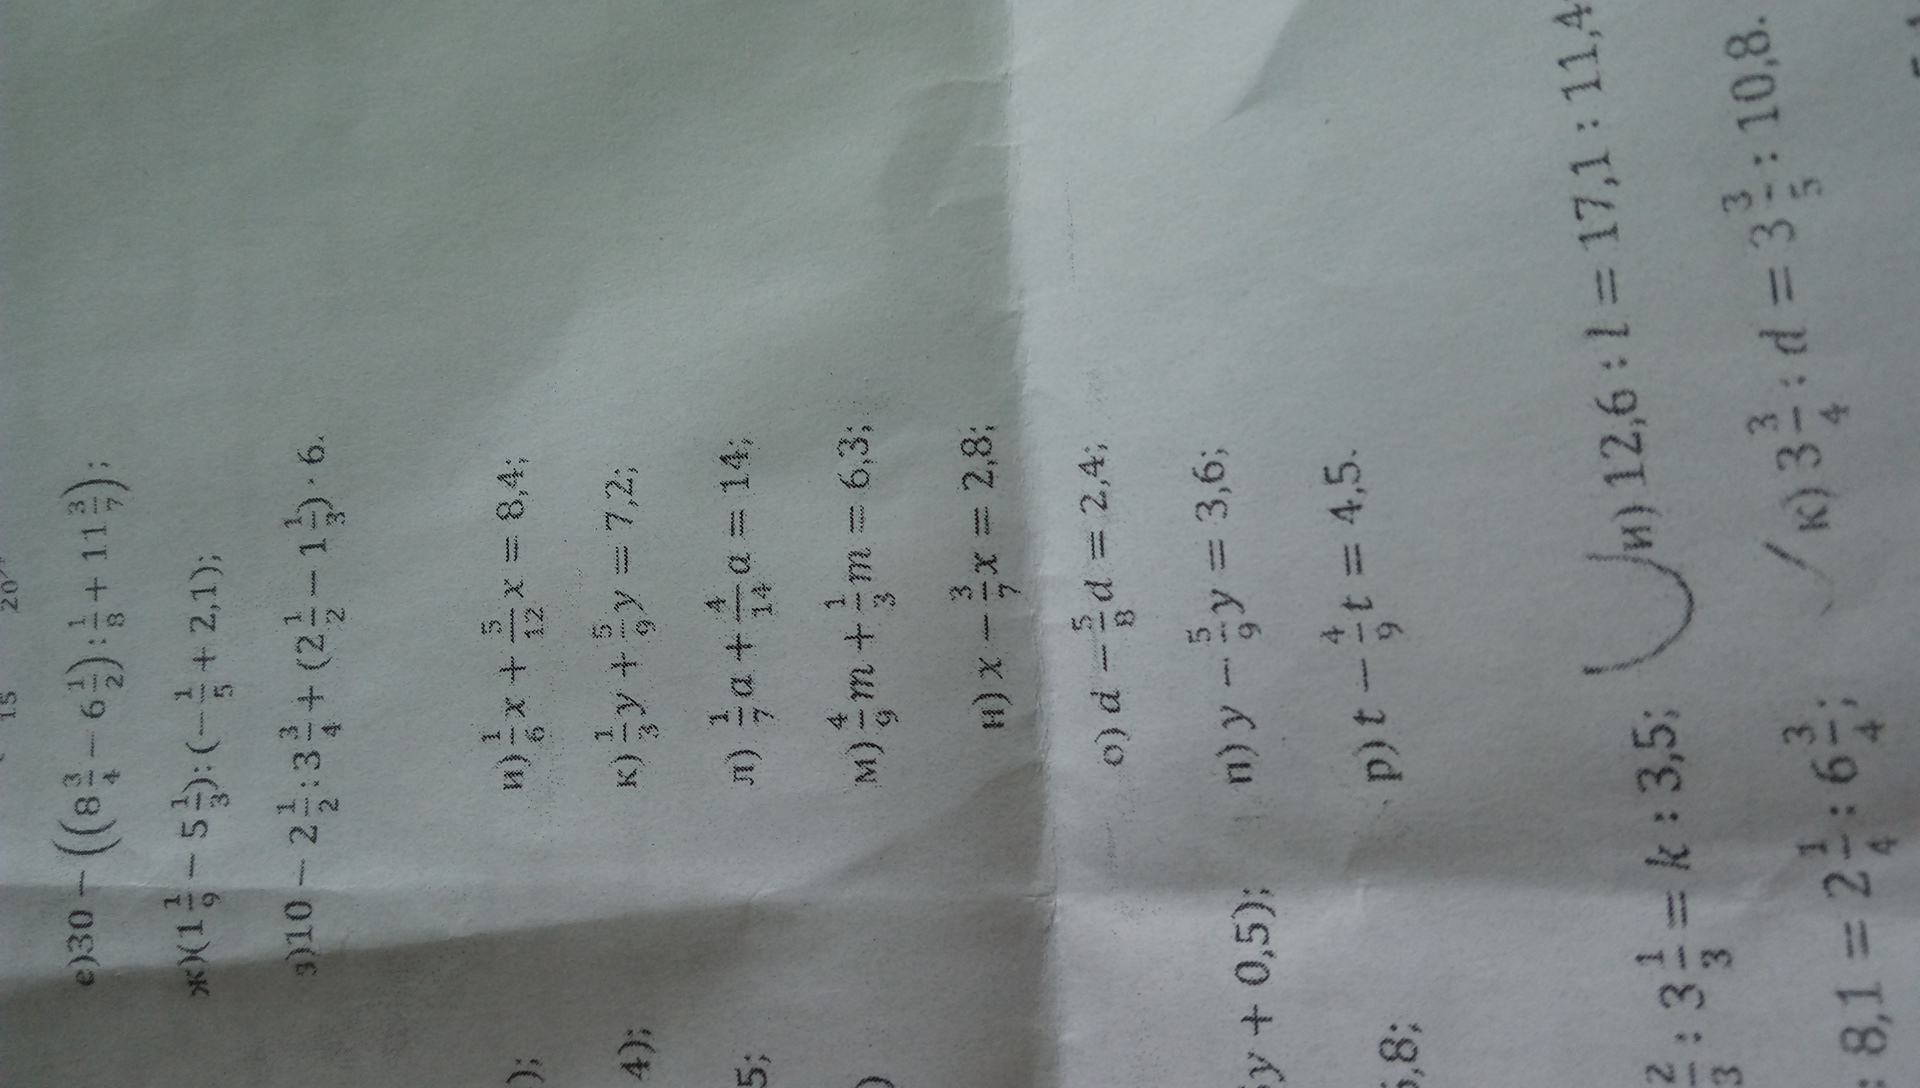 15 20
е)30 − ((8 3/4 − 6 1/2) : 1/8 + 11 3/7);
ж)(1 1/9 − 5 1/3) : (− 1/5 + 2,1);
з)10 − 2 1/2 : 3 3/4 + (2 1/2 − 1 1/3) · 6.
); и) 1/6 x + 5/12 x = 8,4;
4); к) 1/3 y + 5/9 y = 7,2;
5; л) 1/7 a + 4/14 a = 14;
) м) 4/9 m + 1/3 m = 6,3;
н) x − 3/7 x = 2,8;
о) d − 5/8 d = 2,4;
y + 0,5); п) y − 5/9 y = 3,6;
,8; р) t − 4/9 t = 4,5.
2/3 : 3 1/3 = k : 3,5; и) 12,6 : l = 17,1 : 11,4
: 8,1 = 2 1/4 : 6 3/4; к) 3 3/4 : d = 3 3/5 : 10,8.